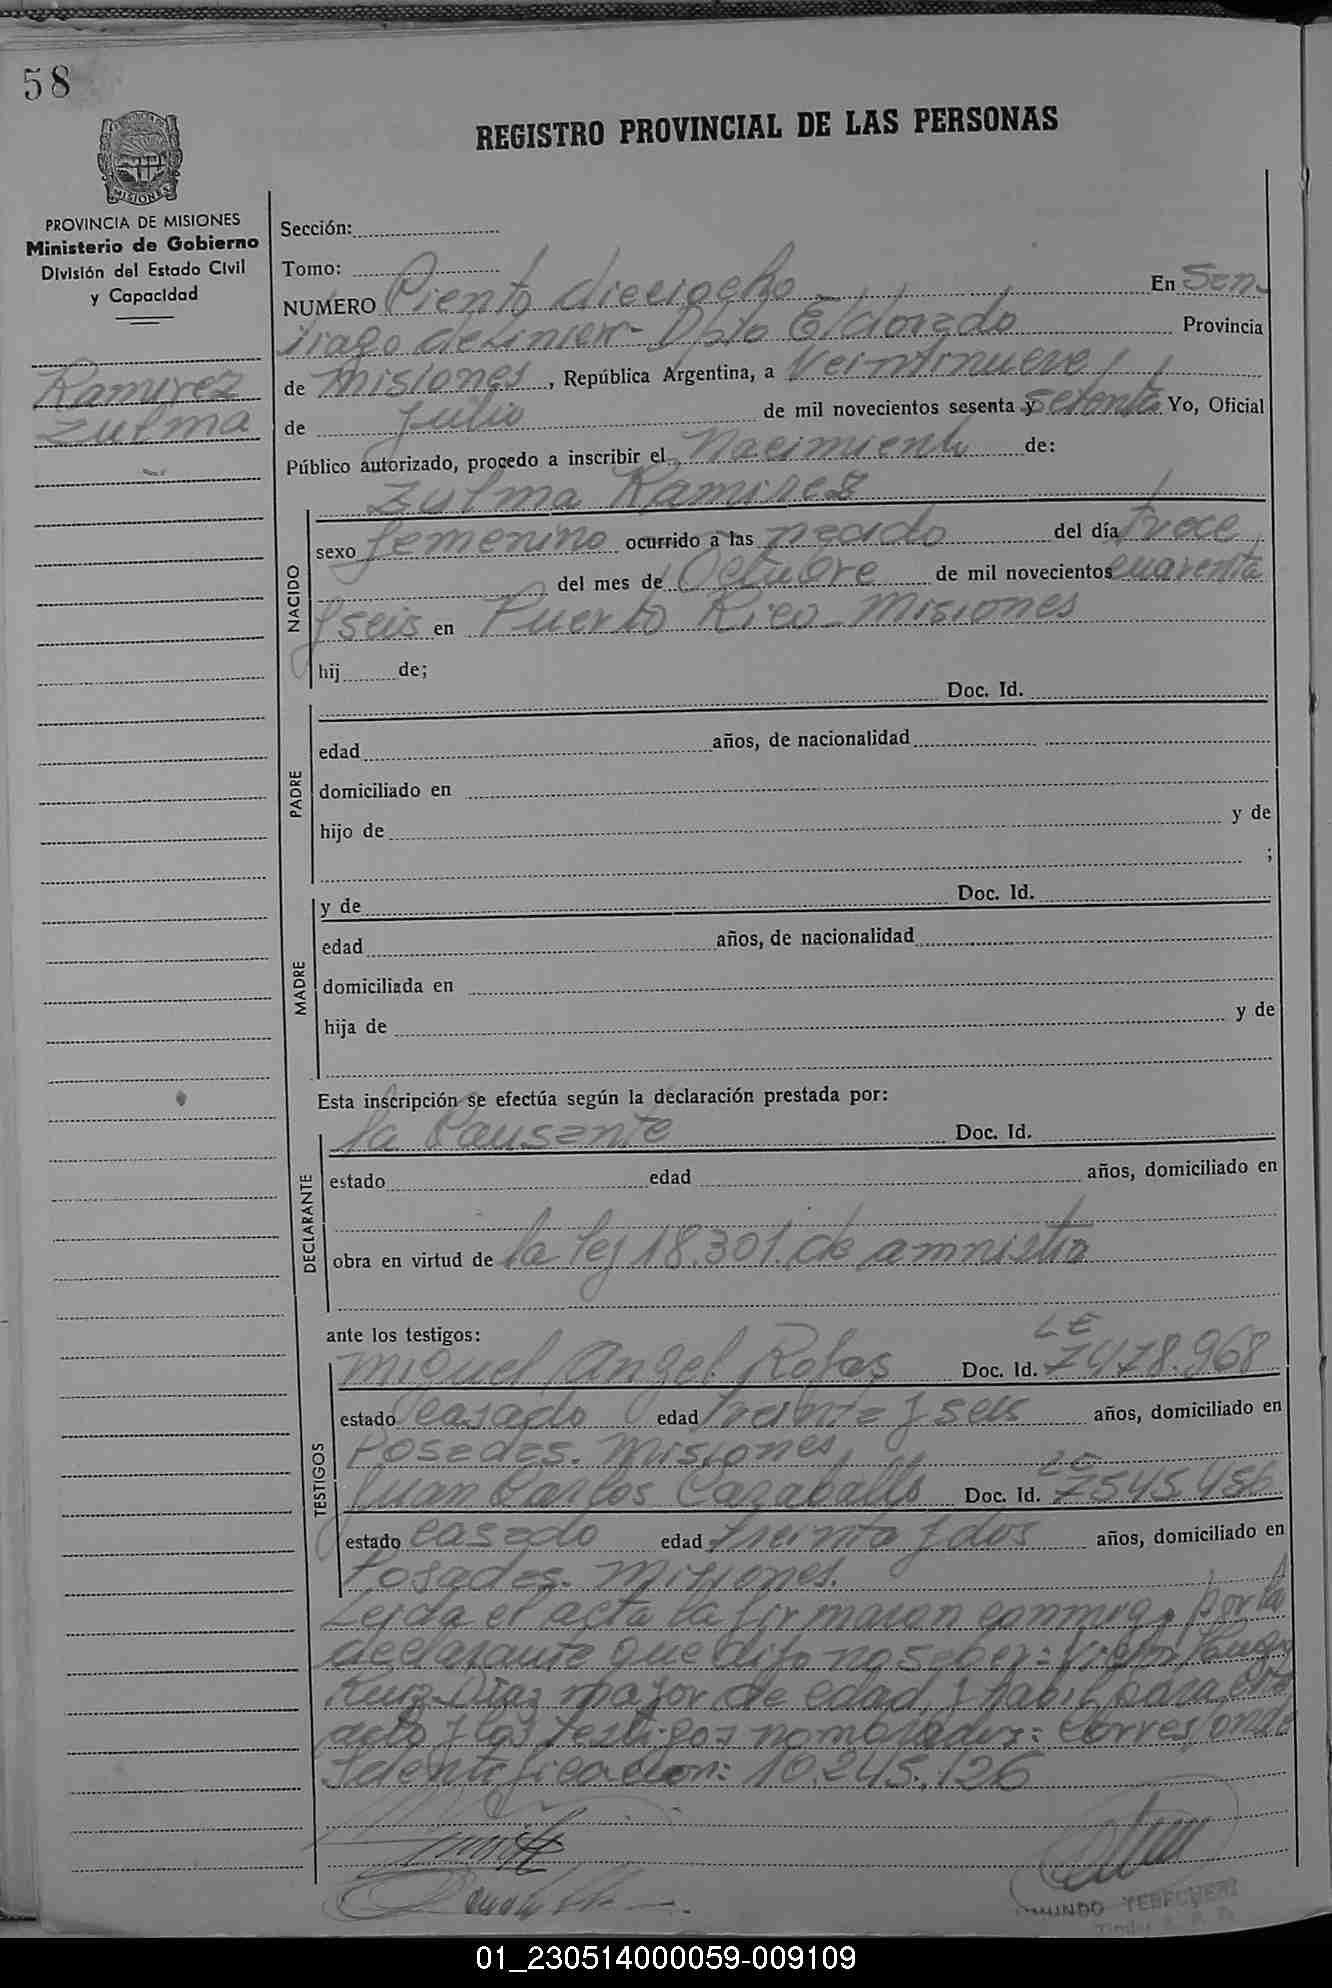 58
REGISTRO PROVINCIAL DE LAS PERSONAS
MISIONES
PROVINCIA DE MISIONES
Ministerio de Gobierno
División del Estado Civil
y Capacidad
Ramirez
Zulma
Sección:
Tomo:
NUMERO Ciento dieciocho En San-
tiago de Liniers - Dpto Eldorado Provincia
de Misiones, República Argentina, a Veintinueve
de Julio de mil novecientos sesenta y setenta Yo, Oficial
Público autorizado, procedo a inscribir el Nacimiento de:
Zulma Ramirez
NACIDO
sexo femenino ocurrido a las nacido del día trece
del mes de Octubre de mil novecientos cuarenta
y seis en Puerto Rico - Misiones
hij de;
Doc. Id.
PADRE
edad años, de nacionalidad
domiciliado en
hijo de y de
;
MADRE
y de Doc. Id.
edad años, de nacionalidad
domiciliada en
hija de y de
Esta inscripción se efectúa según la declaración prestada por:
DECLARANTE
la Causante Doc. Id.
estado edad años, domiciliado en
obra en virtud de la ley 18.301. de amnistia
ante los testigos:
TESTIGOS
LE
Miguel Angel Rojas Doc. Id. 7478.968
estado casado edad treinta y seis años, domiciliado en
Posadas. Misiones,
LE
Juan Carlos Caraballo Doc. Id. 7545.456
estado casado edad treinta y dos años, domiciliado en
Posadas. Misiones.
Leida el acta la firmaron conmigo, por la
declarante que dijo no saber:
Ruiz Diaz mayor de edad y habil para el
acto y los testigos nombrados: Corresponde
Identificacion: 10.245.126
MUNDO
01_230514000059-009109